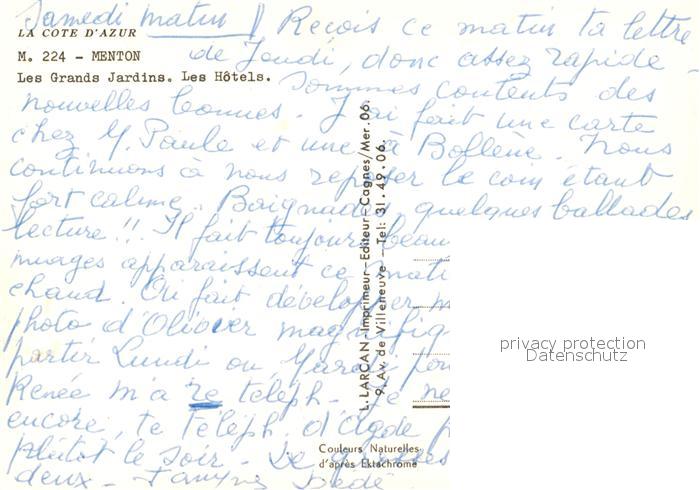 Samedi matin || Reçois ce matin ta lettre
LA COTE D'AZUR
M. 224 - MENTON
de Jeudi, donc assez rapide -
Les Grands Jardins. Les Hôtels.
Sommes contents des
nouvelles bonnes. J'ai fait une carte
chez Y. Paule et une à Bollène. Nous
continuons à nous reposer le coin étant
fort calme. Baignades, quelques ballades
lecture!! Il fait toujours beau
nuages apparaissent ce mati
chaud. Ai fait développer
photo d'Olivier magnifiq
partir Lundi ou
Renée m'a re teleph- Je ne
encore, te téleph. d'Agde
plutôt le soir - De
deux -
L. LARCAN - Imprimeur - Editeur - Cagnes/Mer. 06.
9, Av. de Villeneuve - Tel: 31.49.06.
Couleurs Naturelles
d'après Ektachrome
privacy protection
Datenschutz